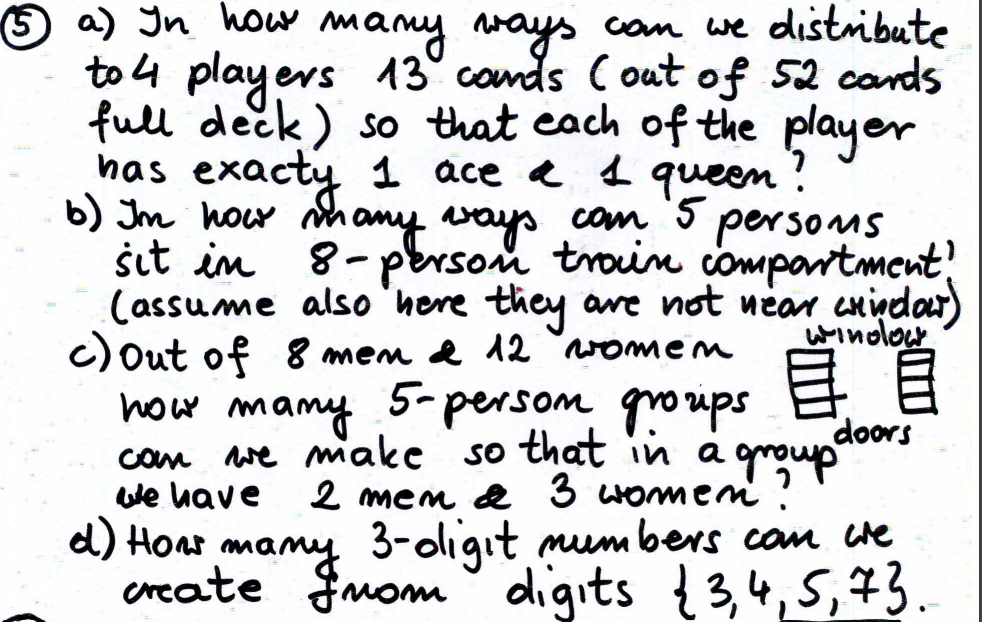 5 a) In how many ways can we distribute
to 4 players 13 cards (out of 52 cards
full deck) so that each of the player
has exacty 1 ace & 1 queen?
b) In how many ways can 5 persons
sit in 8-person train compartment?
(assume also here they are not near window)
c) Out of 8 men & 12 women
window
how many 5-person groups
can we make so that in a group
doors
we have 2 men & 3 women?
d) How many 3-digit numbers can we
create from digits {3,4,5,7}.